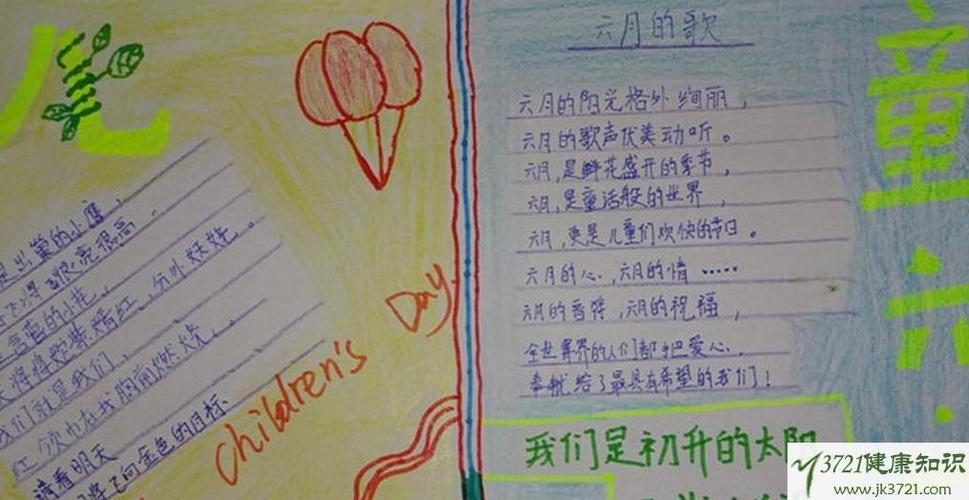 儿
出巢的小鹰,
很高.
含苞的小花,
紫嫣红,分外妖娆.
我们就是我们,
在我胸前燃烧.
请看明天
飞向金色的目标
Children's Day.
六月的歌
六月的阳光格外绚丽,
六月的歌声优美动听。
六月,是鲜花盛开的季节,
六月,是童话般的世界,
六月,更是儿童们欢快的节日。
六月的心,六月的情……
六月的音符,六月的祝福,
全世界的人们都把爱心,
奉献给了最具有希望的我们!
我们是初升的太阳
童
六
·
3721健康知识
www.jk3721.com